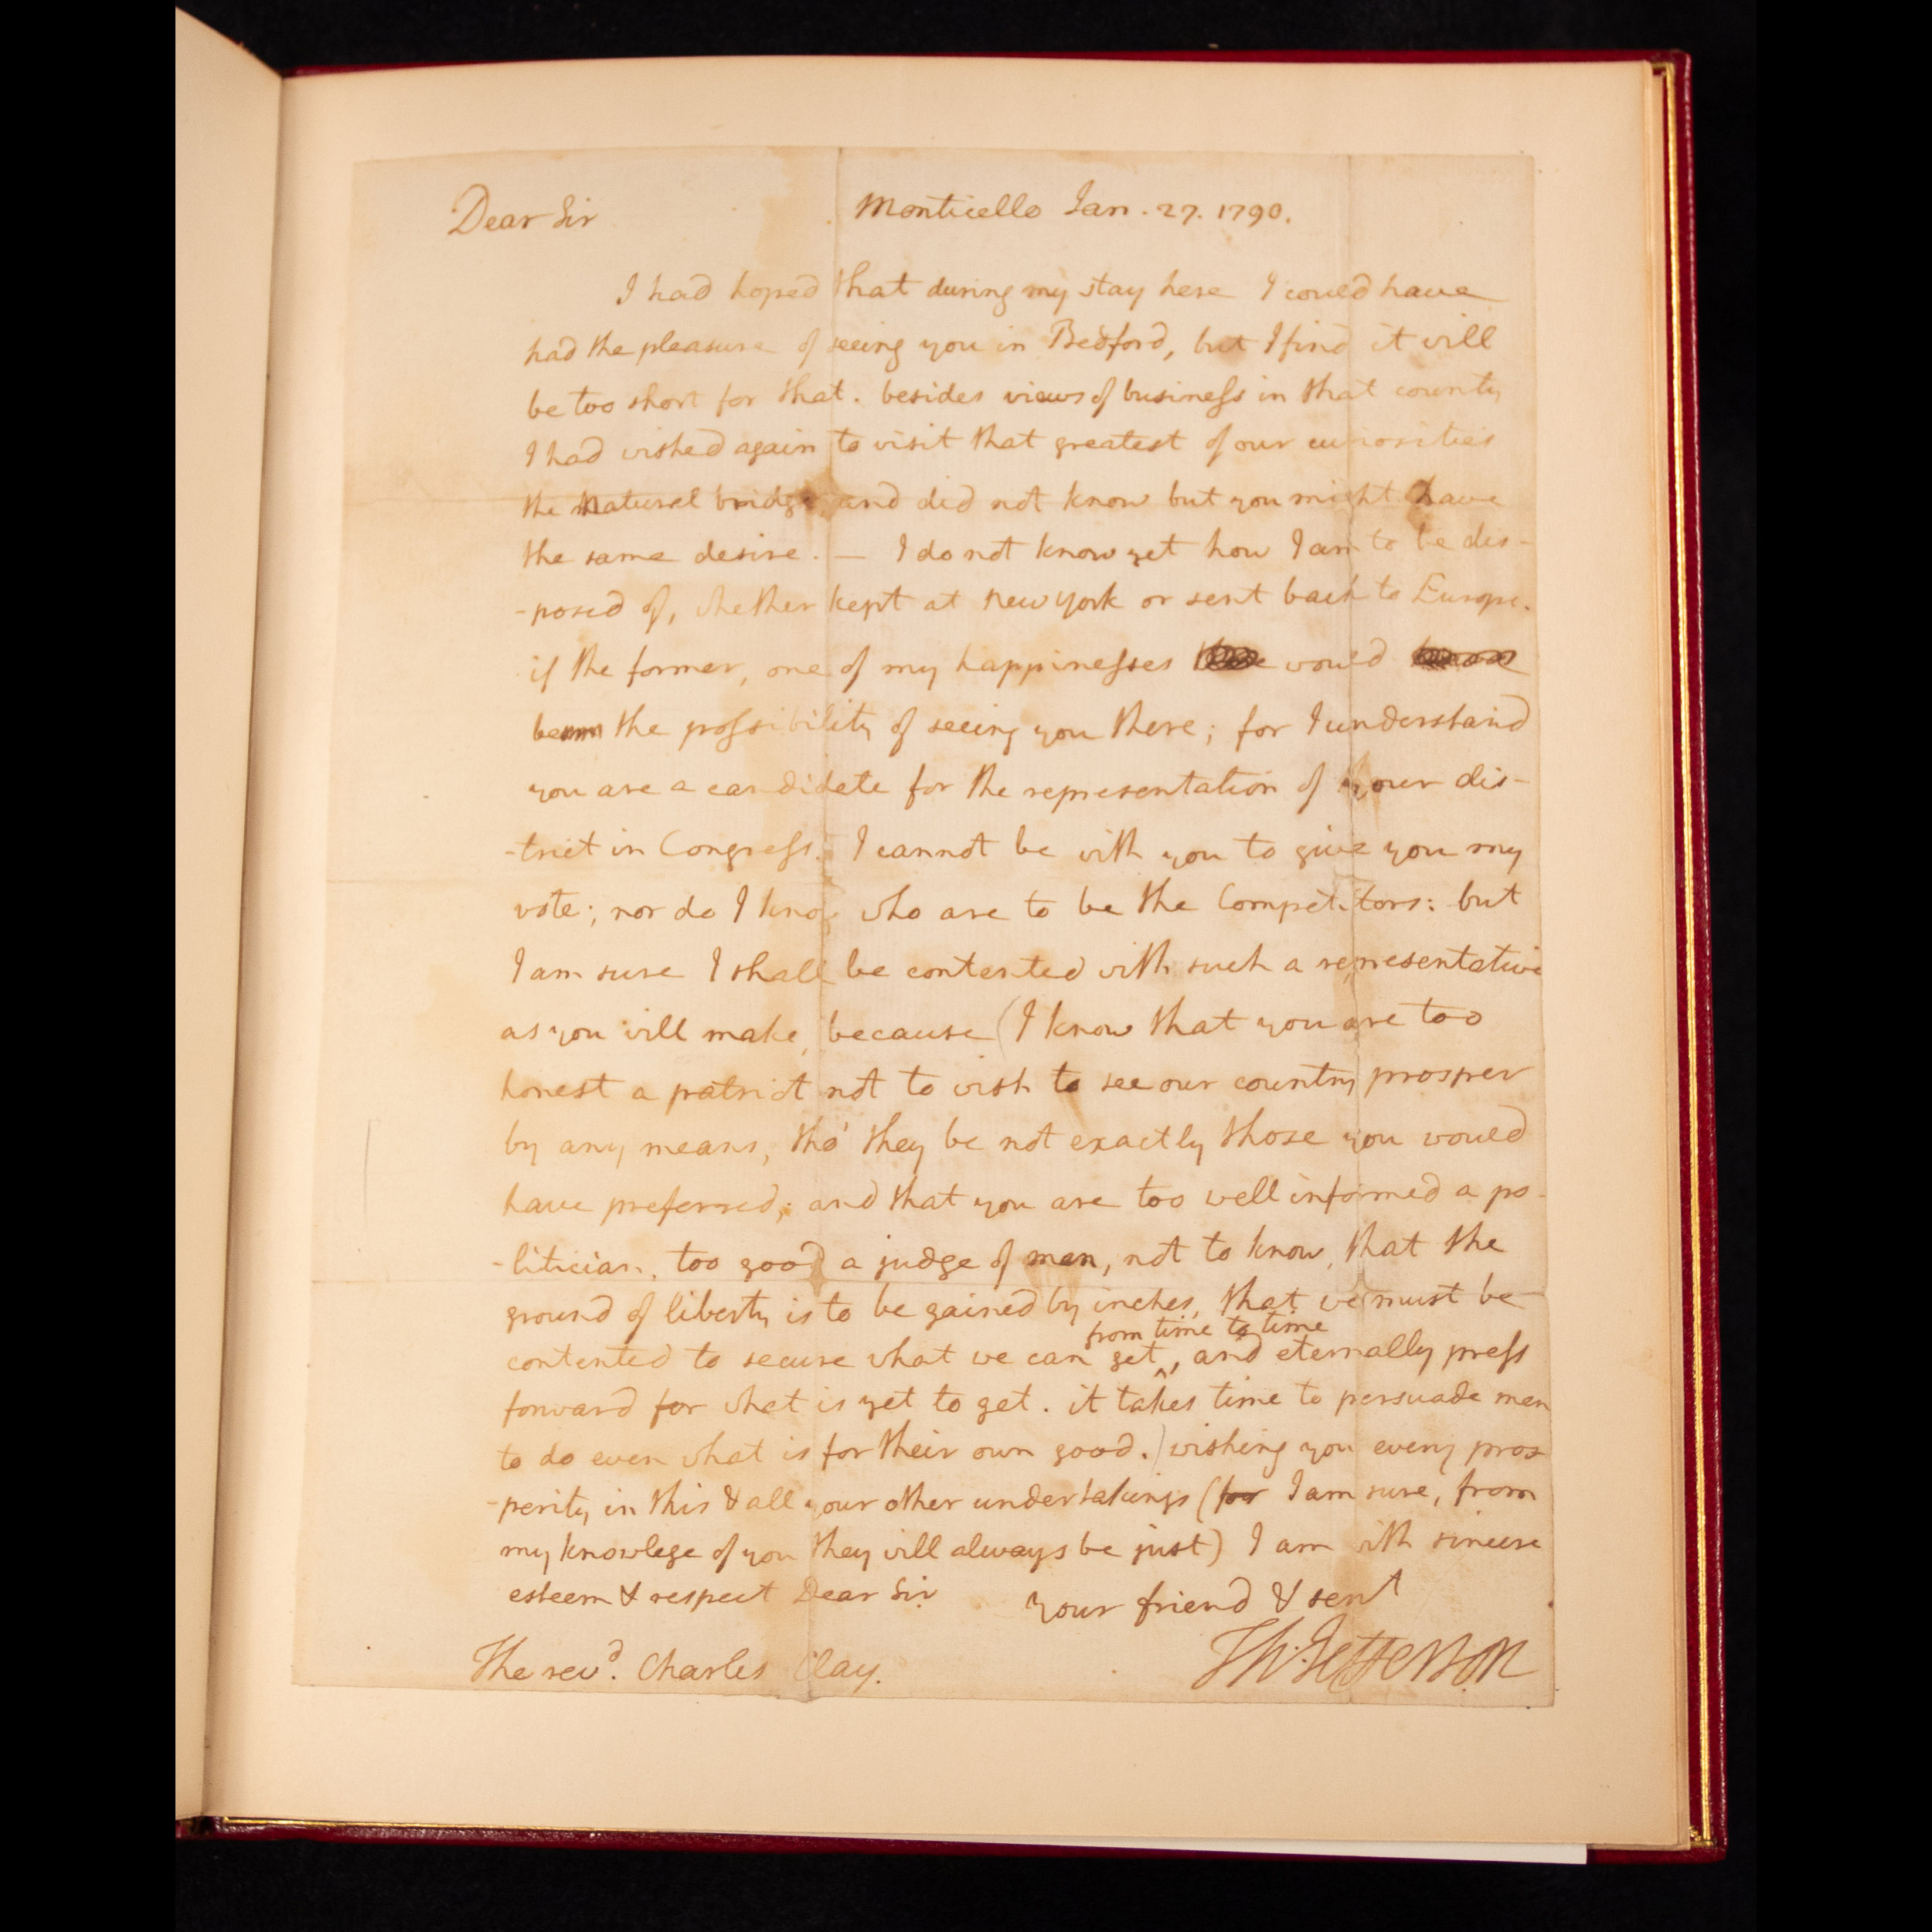 Dear Sir
Monticello Jan. 27. 1790.
I had hoped that during my stay here I could have
had the pleasure of seeing you in Bedford, but I find it will
be too short for that. besides views of business in that county
I had wished again to visit that greatest of our curiosities
the Natural bridge, and did not know but you might have
the same desire. — I do not know yet how I am to be dis-
-posed of, whether kept at New york or sent back to Europe.
if the former, one of my happinesses would
be the possibility of seeing you there; for I understand
you are a candidate for the representation of your dis-
-trict in Congress. I cannot be with you to give you my
vote; nor do I know who are to be the Competitors: but
I am sure I shall be contented with such a representative
as you will make, because (I know that you are too
honest a patriot not to wish to see our country prosper
by any means, tho' they be not exactly those you would
have preferred; and that you are too well informed a po-
-litician, too good a judge of men, not to know, that the
ground of liberty is to be gained by inches, that we must be
from time to time
contented to secure what we can get ^, and eternally press
forward for what is yet to get. it takes time to persuade men
to do even what is for their own good.) wishing you every pros
-perity in this & all your other undertakings (for I am sure, from
my knowlege of you they will always be just) I am with sincere
esteem & respect Dear Sir your friend & servt
Th: Jefferson
The revd. Charles Clay.